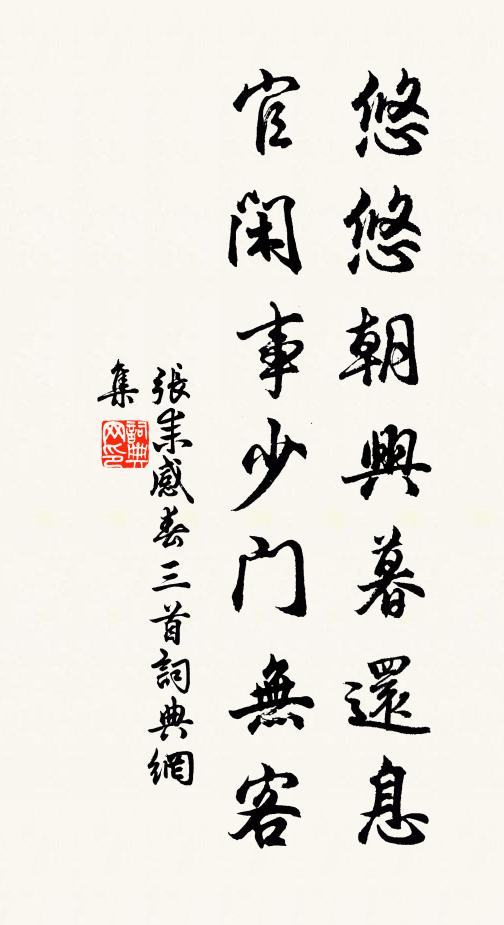 悠悠朝興暮還息
官閑事少門無客
張耒感春三首詞典網
集
詞典
网印